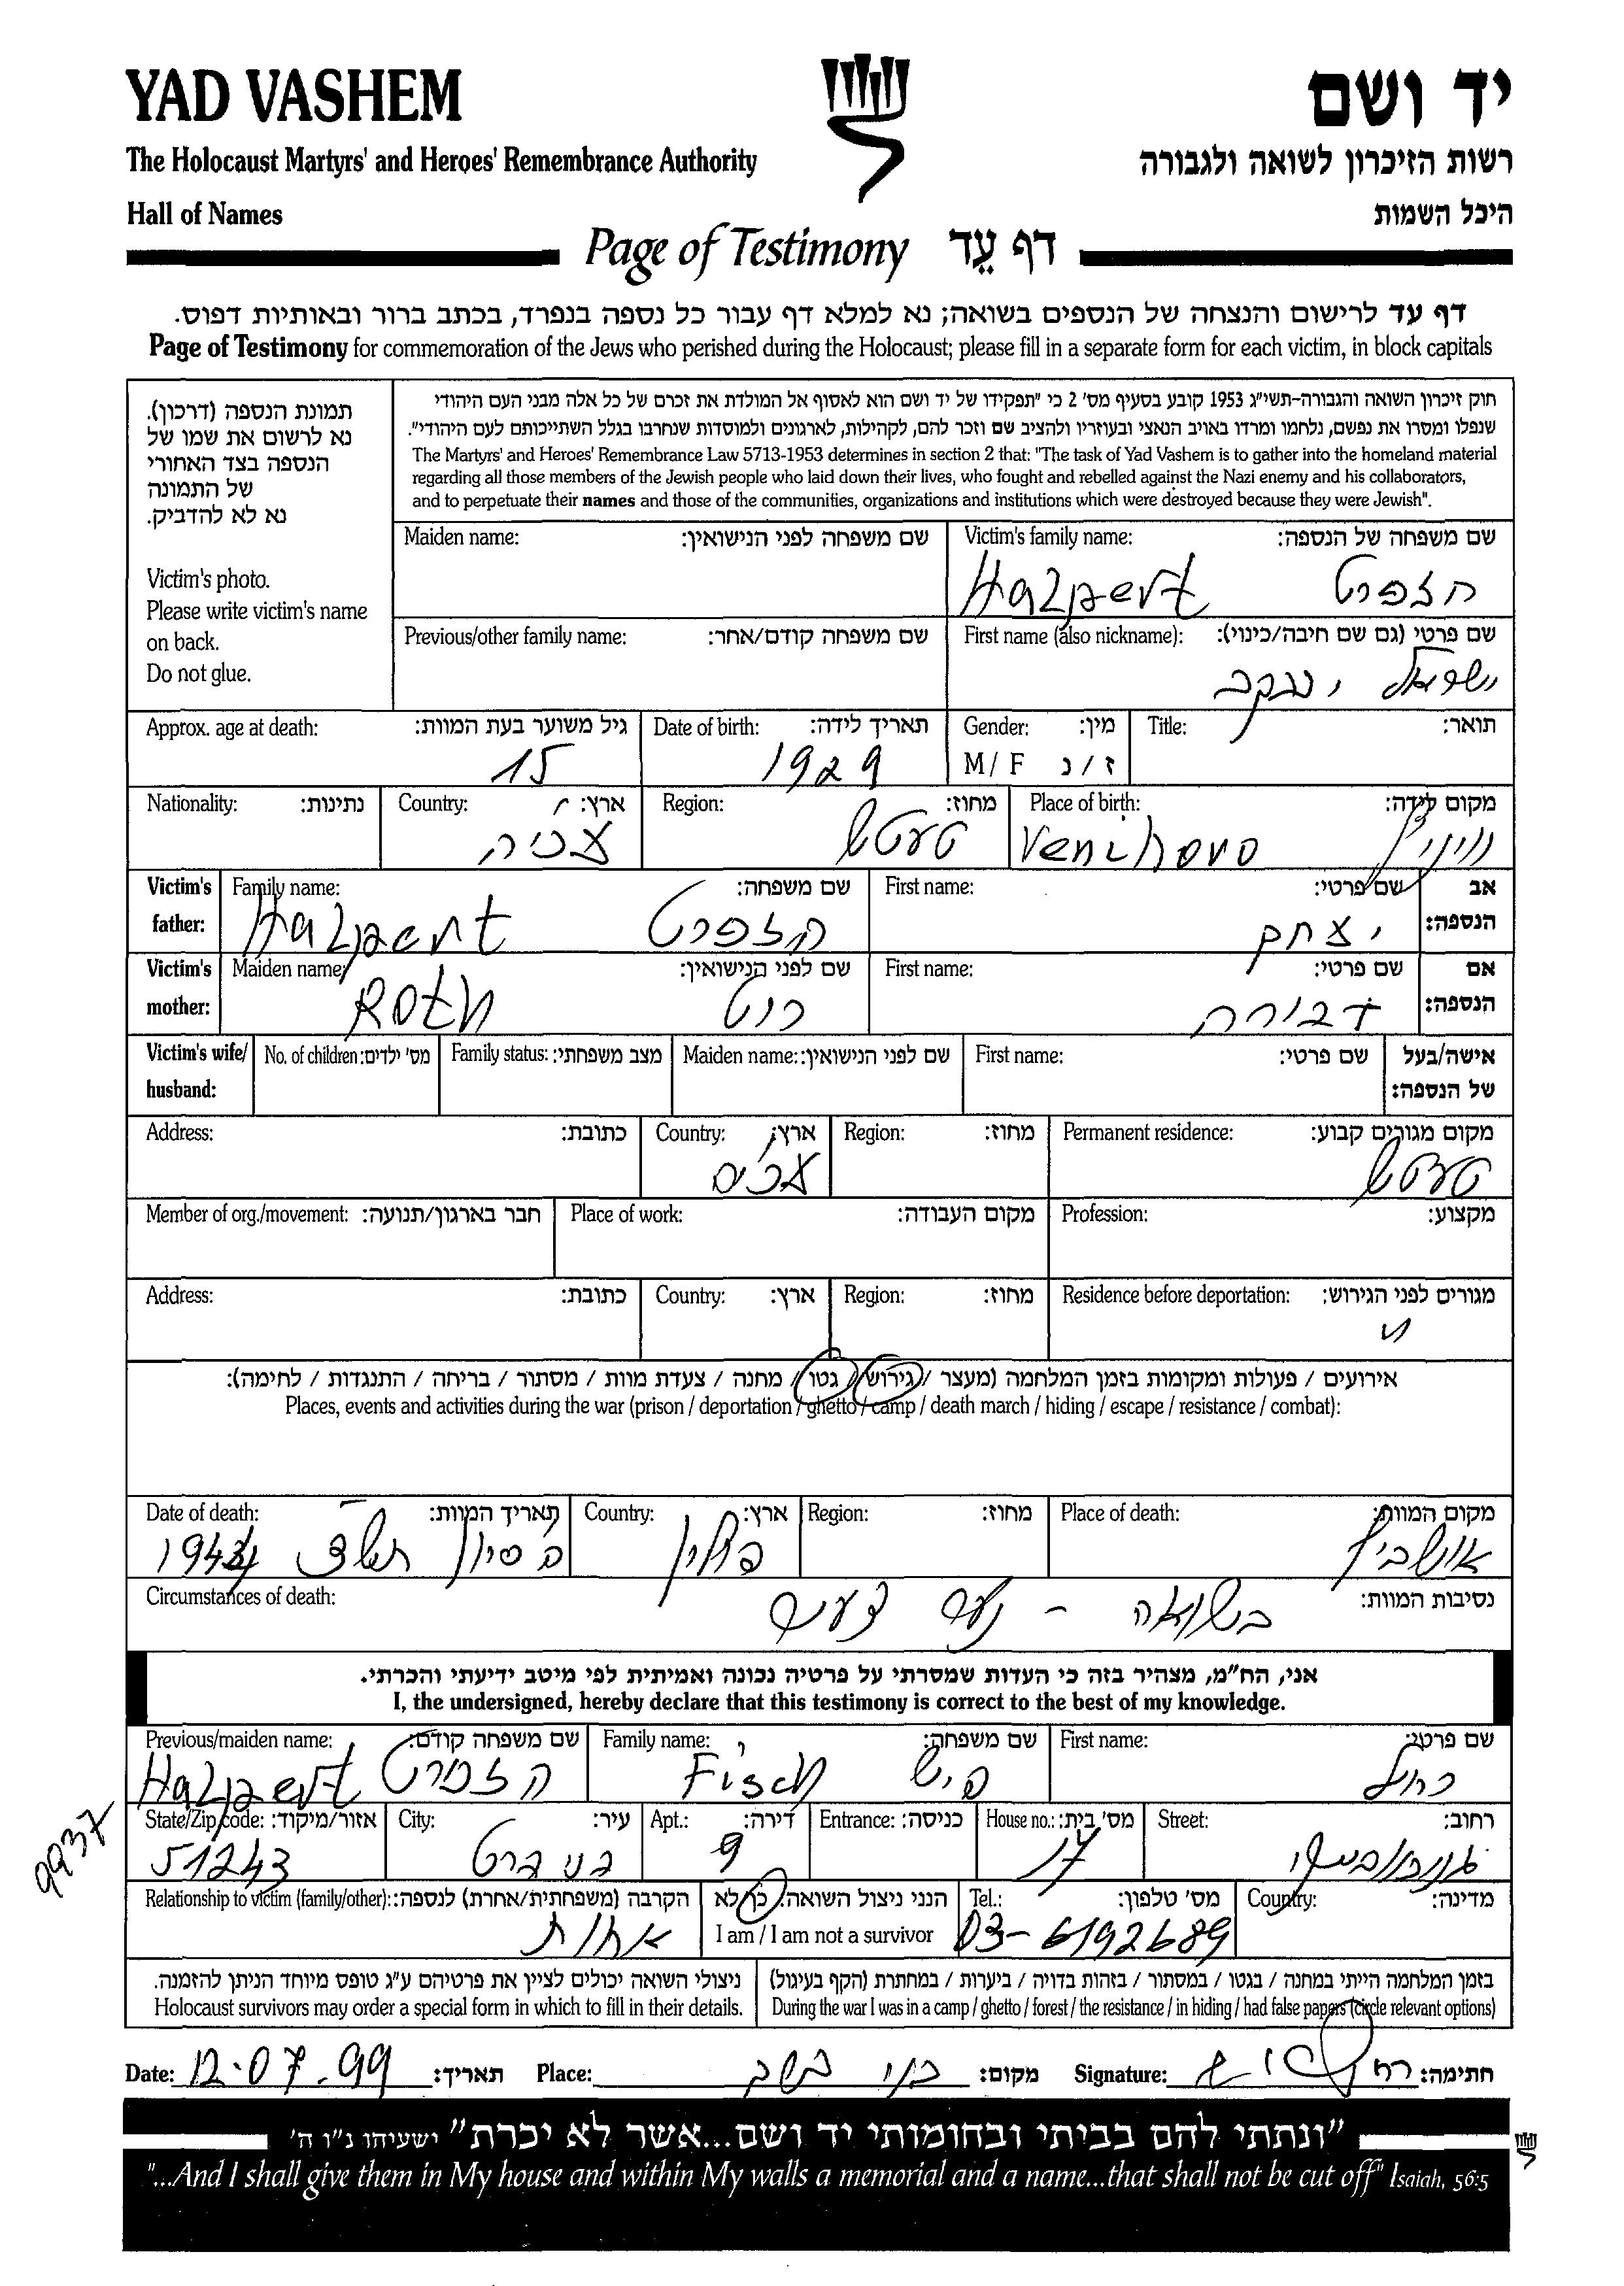 YAD VASHEM
יד ושם
The Holocaust Martyrs' and Heroes' Remembrance Authority
רשות הזיכרון לשואה ולגבורה
Hall of Names
היכל השמות
Page of Testimony דף עֵד
דף עד לרישום והנצחה של הנספים בשואה; נא למלא דף עבור כל נספה בנפרד, בכתב ברור ובאותיות דפוס.
Page of Testimony for commemoration of the Jews who perished during the Holocaust; please fill in a separate form for each victim, in block capitals
תמונת הנספה (דרכון).
נא לרשום את שמו של
הנספה בצד האחורי
של התמונה
נא לא להדביק.
Victim's photo.
Please write victim's name
on back.
Do not glue.
חוק זיכרון השואה והגבורה-תשי"ג 1953 קובע בסעיף מס' 2 כי "תפקידו של יד ושם הוא לאסוף אל המולדת את זכרם של כל אלה מבני העם היהודי
שנפלו ומסרו את נפשם, נלחמו ומרדו באויב הנאצי ובעוזריו ולהציב שם וזכר להם, לקהילות, לארגונים ולמוסדות שנחרבו בגלל השתייכותם לעם היהודי".
The Martyrs' and Heroes' Remembrance Law 5713-1953 determines in section 2 that: "The task of Yad Vashem is to gather into the homeland material
regarding all those members of the Jewish people who laid down their lives, who fought and rebelled against the Nazi enemy and his collaborators,
and to perpetuate their names and those of the communities, organizations and institutions which were destroyed because they were Jewish".
Maiden name: שם משפחה לפני הנישואין:
Victim's family name: שם משפחה של הנספה:
Halpert הלפרט
Previous/other family name: שם משפחה קודם/אחר:
First name (also nickname): שם פרטי (גם שם חיבה/כינוי):
ישראל יעקב
Approx. age at death: גיל משוער בעת המוות:
15
Date of birth: תאריך לידה:
1929
Gender: מין:
M / F ז / נ
Title: תואר:
Nationality: נתינות:
Country: ארץ:
צכיה
Region: מחוז:
טעטש
Place of birth: מקום לידה:
Venihovo
Victim's father: אב הנספה:
Family name: שם משפחה:
Halpert הלפרט
First name: שם פרטי:
יצחק
Victim's mother: אם הנספה:
Maiden name: שם לפני הנישואין:
Roth רוט
First name: שם פרטי:
דבורה
Victim's wife/ husband: אישה/בעל של הנספה:
No. of children: מס' ילדים:
Family status: מצב משפחתי:
Maiden name: שם לפני הנישואין:
First name: שם פרטי:
Address: כתובת:
Country: ארץ:
Region: מחוז:
Permanent residence: מקום מגורים קבוע:
טעטש
Member of org./movement: חבר בארגון/תנועה:
Place of work: מקום העבודה:
Profession: מקצוע:
Address: כתובת:
Country: ארץ:
Region: מחוז:
Residence before deportation: מגורים לפני הגירוש:
אירועים / פעולות ומקומות בזמן המלחמה (מעצר / גירוש / גטו / מחנה / צעדת מוות / מסתור / בריחה / התנגדות / לחימה):
Places, events and activities during the war (prison / deportation / ghetto / camp / death march / hiding / escape / resistance / combat):
Date of death: תאריך המוות:
סיון תש"ד 1944
Country: ארץ:
פולין
Region: מחוז:
Place of death: מקום המוות:
אושביץ
Circumstances of death: נסיבות המוות:
בשואה -
אני, הח"מ, מצהיר בזה כי העדות שמסרתי על פרטיה נכונה ואמיתית לפי מיטב ידיעתי והכרתי.
I, the undersigned, hereby declare that this testimony is correct to the best of my knowledge.
Previous/maiden name: שם משפחה קודם:
Halpert הלפרט
Family name: שם משפחה:
Fisch פיש
First name: שם פרטי:
רחל
9937
State/Zip code: אזור/מיקוד:
51243
City: עיר:
בני ברק
Apt.: דירה:
9
Entrance: כניסה:
House no.: מס' בית:
17
Street: רחוב:
Relationship to victim (family/other): הקרבה (משפחתית/אחרת) לנספה:
אחות
הנני ניצול השואה: כן/לא
I am / I am not a survivor
Tel.: מס' טלפון:
03-6192689
Country: מדינה:
ניצולי השואה יכולים לציין את פרטיהם ע"ג טופס מיוחד הניתן להזמנה.
Holocaust survivors may order a special form in which to fill in their details.
בזמן המלחמה הייתי במחנה / בגטו / במסתור / בזהות בדויה / ביערות / במחתרת (הקף בעיגול)
During the war I was in a camp / ghetto / forest / the resistance / in hiding / had false papers (circle relevant options)
Date: 12.07.99 תאריך: Place: בני ברק מקום: Signature: רחל פיש חתימה:
"ונתתי להם בביתי ובחומותי יד ושם...אשר לא יכרת" ישעיהו נ"ו ה'
"...And I shall give them in My house and within My walls a memorial and a name...that shall not be cut off" Isaiah, 56:5